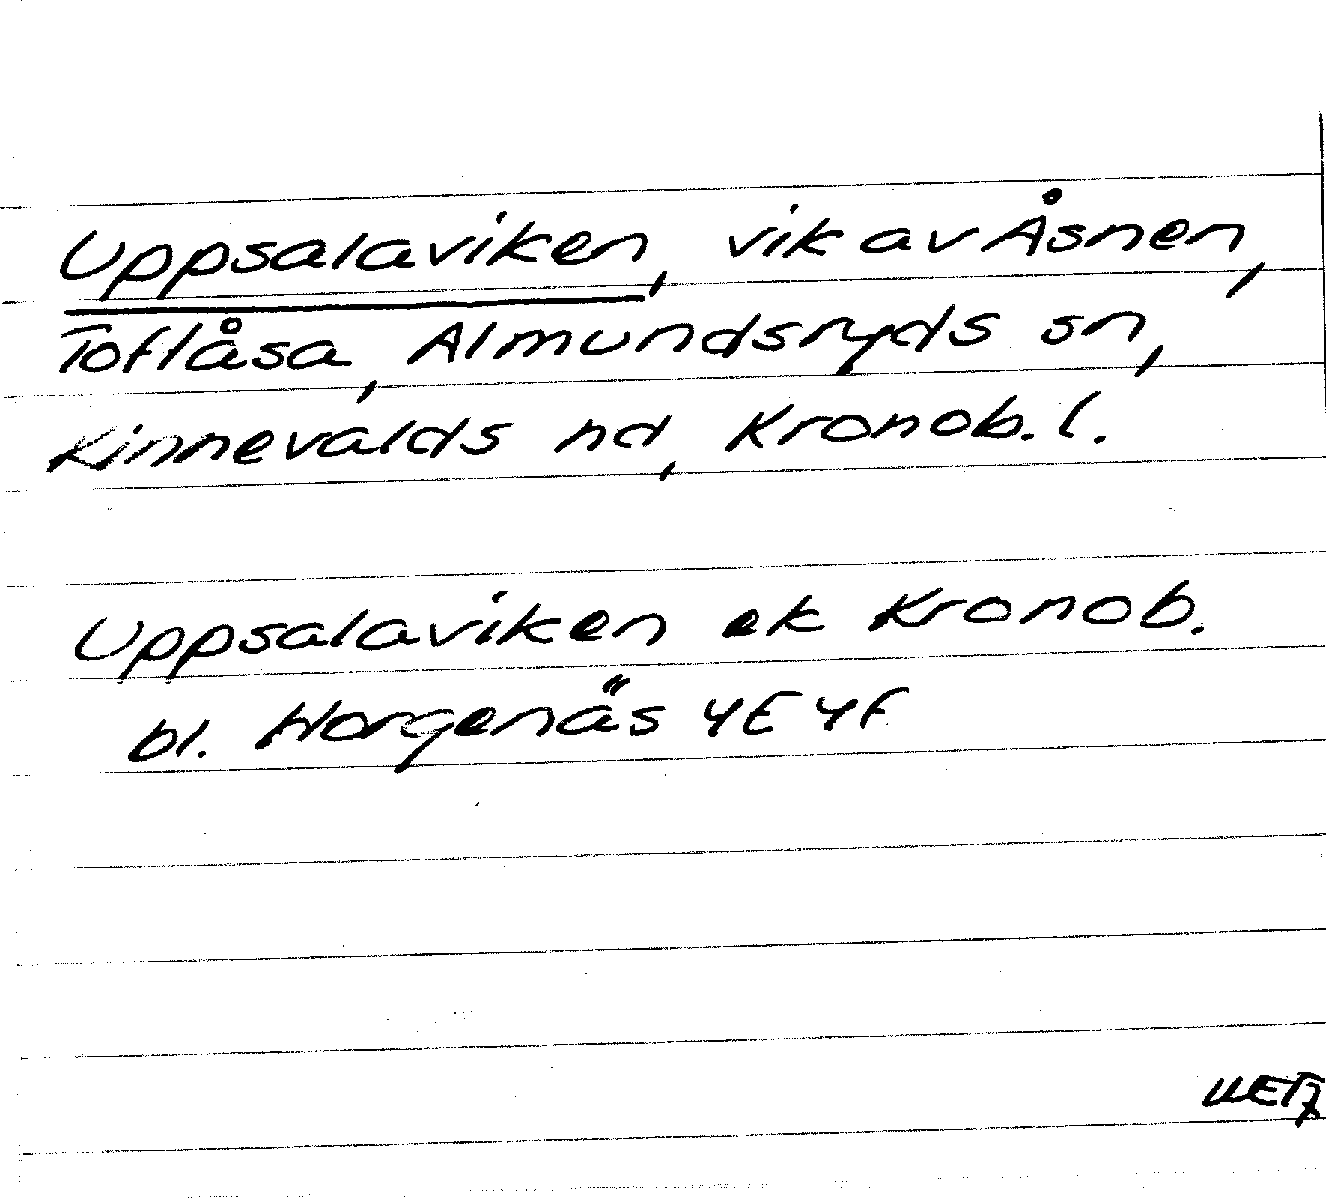 Uppsalaviken, vik av Åsnen,
Toflåsa, Almundsryds sn,
Kinnevalds hd, Kronob. l.
Uppsalaviken ek Kronob.
bl. Horgenäs 4E 4F